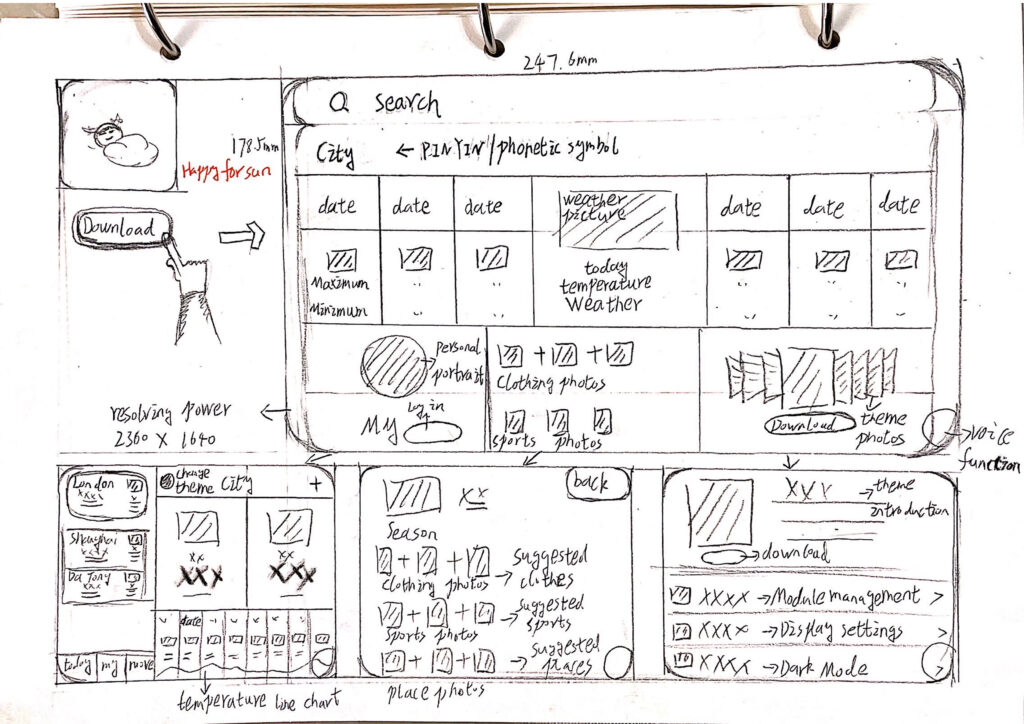 247.6mm
178.5mm
Happy for sun
Download
search
City ← PINYIN/phonetic symbol
date date date weather picture date date date
Maximum
Minimum
today
temperature
Weather
resolving power
2360 X 1640
personal
portrait
Log in
My
+ +
Clothing photos
sports photos
Download
theme
photos
voice
function
London
xxx
Shanghai
xxx
xxx
change
theme City +
xx
XXX
xx
XXX
date
today my more
temperature line chart
xx
back
Season
+ +
clothing photos
suggested
clothes
+ +
sports photos
suggested
sports
+ +
place photos
suggested
places
XXX
theme
introduction
download
XXXX → Module management >
XXXX → Display settings >
XXXX → Dark Mode >